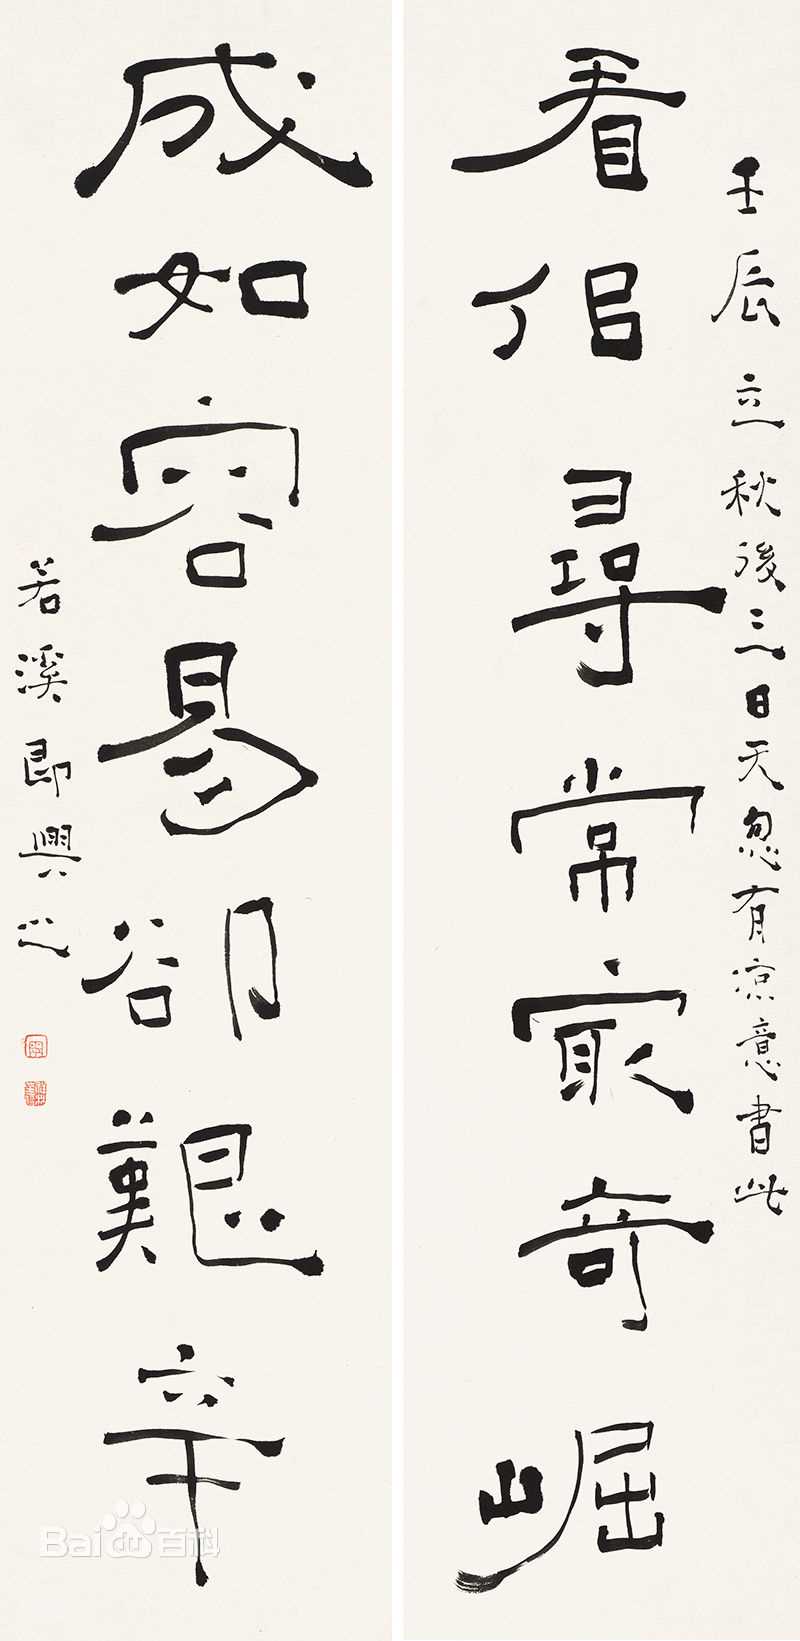 壬辰立秋後三日天忽有涼意書此
看佀尋常㝡奇崛
成如容易卻艱辛
若溪即興之
Bai百科